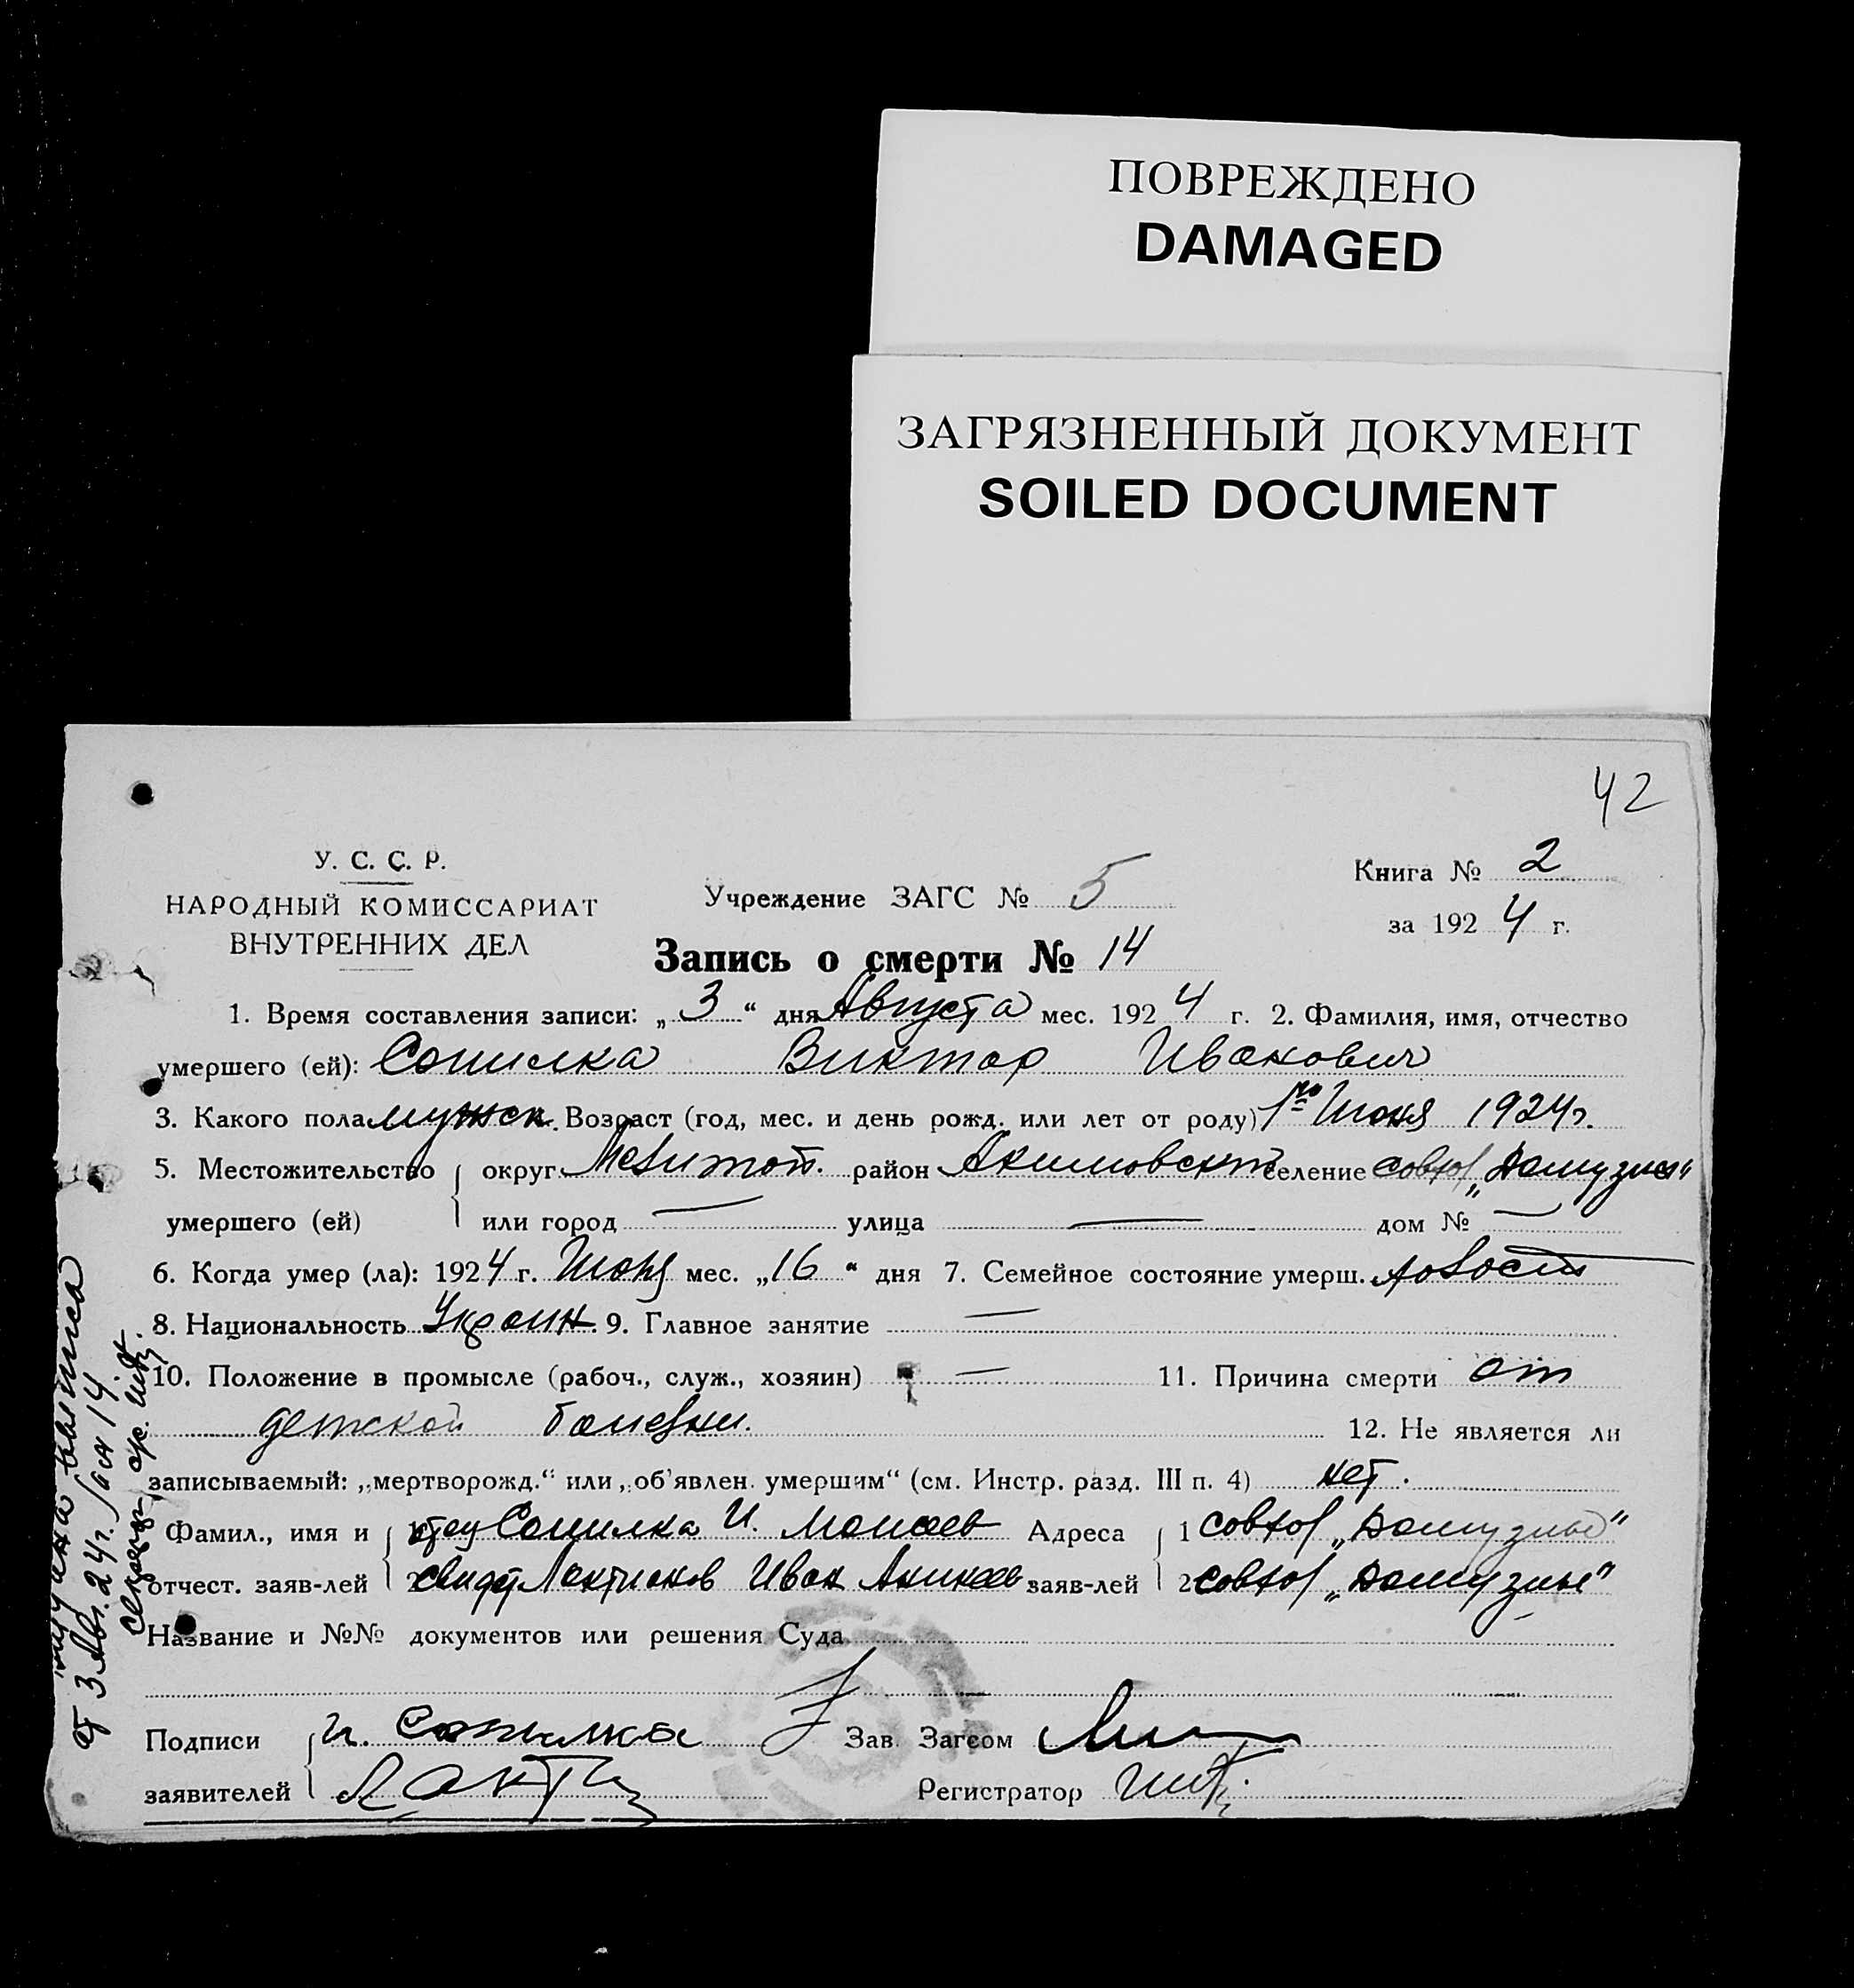 ПОВРЕЖДЕНО
DAMAGED
ЗАГРЯЗНЕННЫЙ ДОКУМЕНТ
SOILED DOCUMENT
42
У. С. С. Р.
НАРОДНЫЙ КОМИССАРИАТ
ВНУТРЕННИХ ДЕЛ
Учреждение ЗАГС № 5
Книга № 2
за 1924 г.
Запись о смерти № 14
1. Время составления записи: „3“ дня Августа мес. 1924 г. 2. Фамилия, имя, отчество
умершего (ей): Сопилка Виктор Иванович
3. Какого пола мужск. Возраст (год, мес. и день рожд. или лет от роду) 1го Июня 1924 г.
5. Местожительство округ Мелитоп. район Акимовский селение совхоз
умершего (ей) или город — улица — дом № —
6. Когда умер (ла): 1924 г. Июня мес. „16“ дня 7. Семейное состояние умерш. холост
8. Национальность Украин. 9. Главное занятие —
10. Положение в промысле (рабоч., служ., хозяин) — 11. Причина смерти от
детской болезни. 12. Не является ли
записываемый: „мертворожд.“ или „об'явлен. умершим“ (см. Инстр. разд. III п. 4) нет.
Фамил., имя и 1 отец Сопилка И. Адреса 1 совхоз
отчест. заяв-лей 2 свидет Иван заяв-лей 2 совхоз
Название и №№ документов или решения Суда
Подписи И. Сопилка Зав. Загсом
заявителей Регистратор
выписка
от 3 Авг. 24 г. 14.